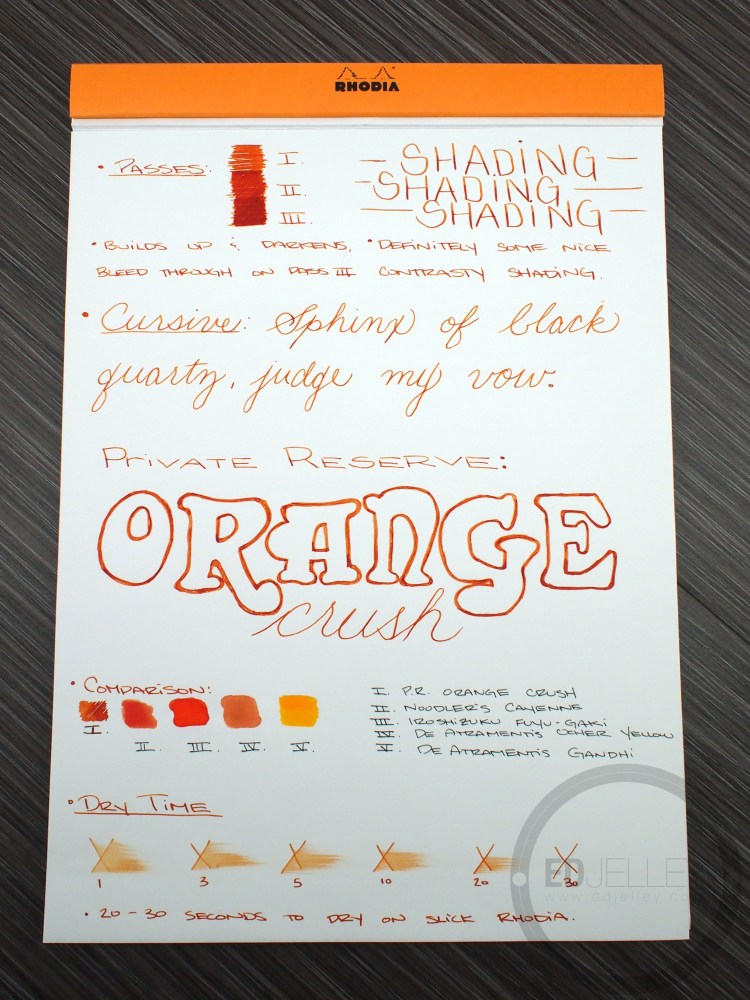 RHODIA
• PASSES:
I.
II.
III.
– SHADING –
– SHADING –
– SHADING –
• BUILDS UP & DARKENS,
BLEED THROUGH ON PASS III
• DEFINITELY SOME NICE
CONTRASTY SHADING.
• Cursive: Sphinx of black
quartz, judge my vow.
PRIVATE RESERVE:
ORANGE
crush
• COMPARISON:
I.
II.
III.
IV.
V.
I. P.R. ORANGE CRUSH
II. NOODLER'S CAYENNE
III. IROSHIZUKU FUYU-GAKI
IV. DE ATRAMENTIS OCHER YELLOW
V. DE ATRAMENTIS GANDHI
• DRY TIME
1 3 5 10 20 30
• 20-30 SECONDS TO DRY ON SLICK RHODIA.
EDJELLE
www.edjelley.co